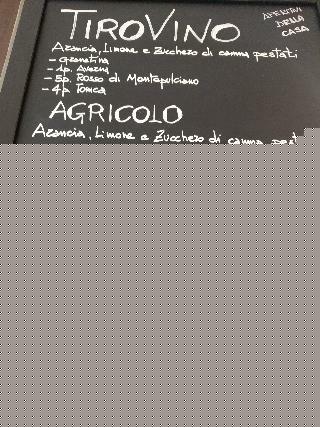 TIROVINO
APERITIVI
DELLA
CASA
Arancia, Limone e Zucchero di canna pestati
- Granatina
- 4p. Averna
- 5p. Rosso di Montepulciano
- 4p Tonica
AGRICOLO
Arancia, Limone e Zucchero di canna